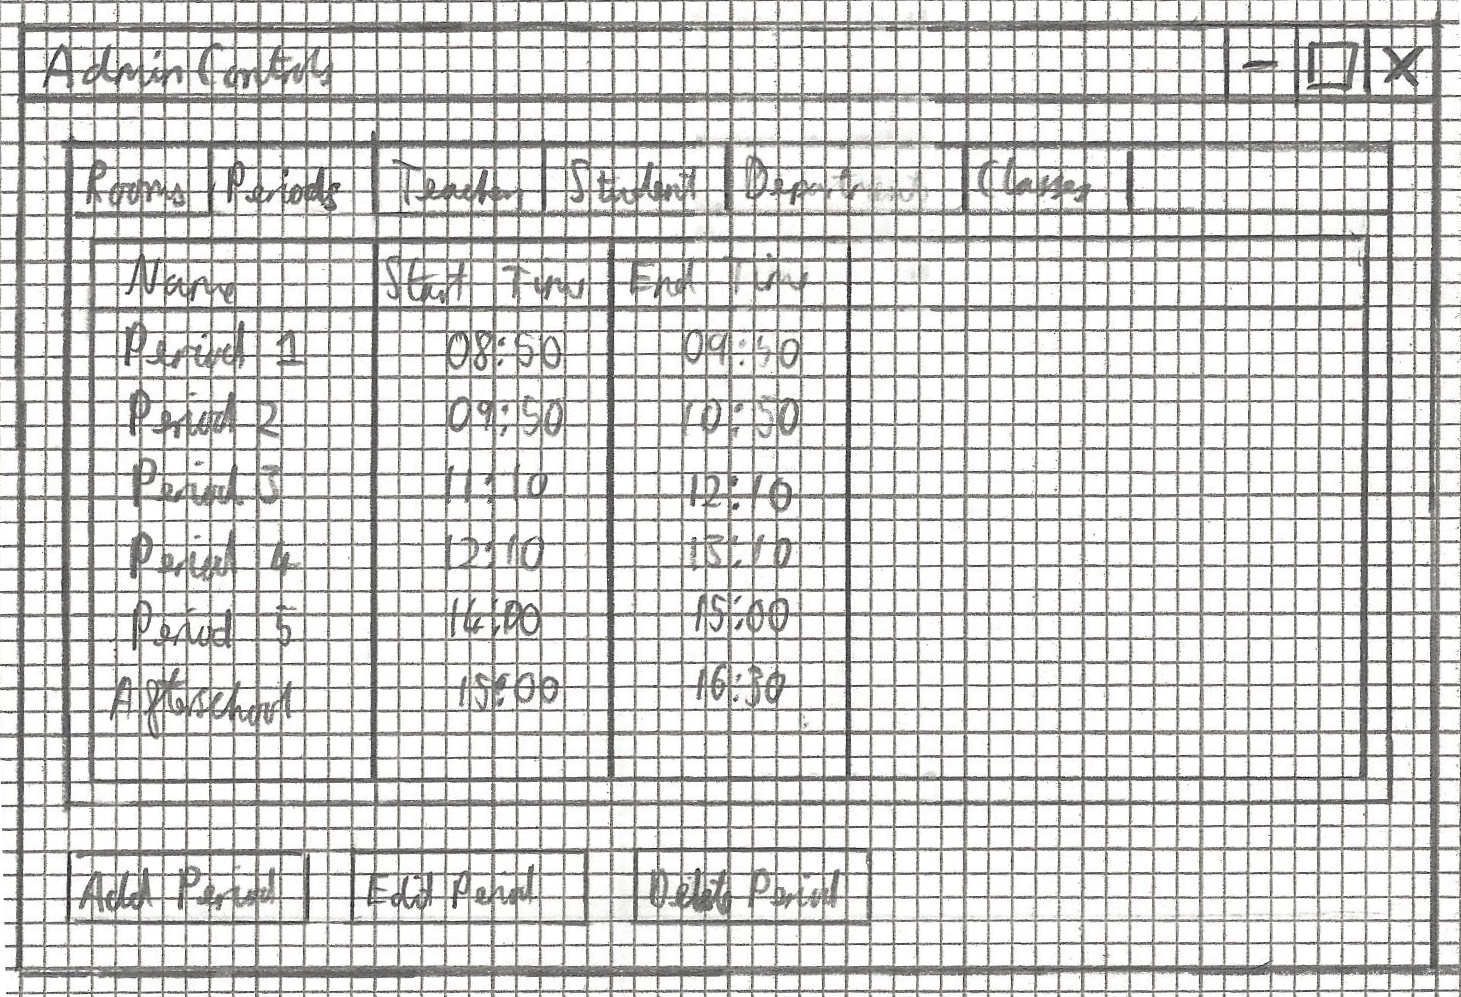 Admin Controls
Rooms Periods Teachers Student Department Classes
Name Start Time End Time
Period 1 08:50 09:50
Period 2 09:50 10:50
Period 3 11:10 12:10
Period 4 12:10 13:10
Period 5 14:00 15:00
Afterschool 15:00 16:30
Add Period Edit Period Delete Period